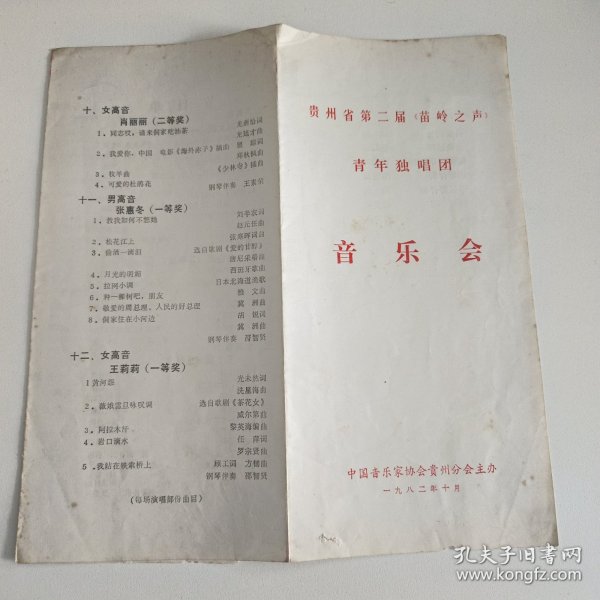 十、女高音
肖丽丽（二等奖）
1、同志哎，请来侗家吃油茶
2、我爱你，中国 电影《海外赤子》插曲
瞿 琮词
郑秋枫曲
3、牧羊曲 《少林寺》插曲
4、可爱的杜鹃花
钢琴伴奏 王素荣
十一、男高音
张惠冬（一等奖）
1、教我如何不想她 刘半农词
赵元任曲
2、松花江上 张寒晖词曲
3、偷洒一滴泪 选自歌剧《爱的甘醇》
4、月光的明媚 西班牙歌曲
5、拉网小调 日本北海道渔歌
6、种一颗树吧，朋友
7、敬爱的周总理、人民的好总理 冀 洲曲
8、侗家住在小河边 胡 锐词
冀 洲曲
钢琴伴奏 邵智贤
十二、女高音
王莉莉（一等奖）
1黄河怨 光未然词
冼星海曲
2、薇娥雷且咏叹调 选自歌剧《茶花女》
威尔第曲
3、阿拉木汗 黎英海编曲
4、岩口滴水 任 萍词
罗宗贤曲
5、我站在铁索桥上 顾工词 方韧曲
钢琴伴奏 邵智贤
（每场演唱部份曲目）
贵州省第二届（苗岭之声）
青年独唱团
音乐会
中国音乐家协会贵州分会主办
一九八二年十月
孔夫子旧书网
www.kongfz.com